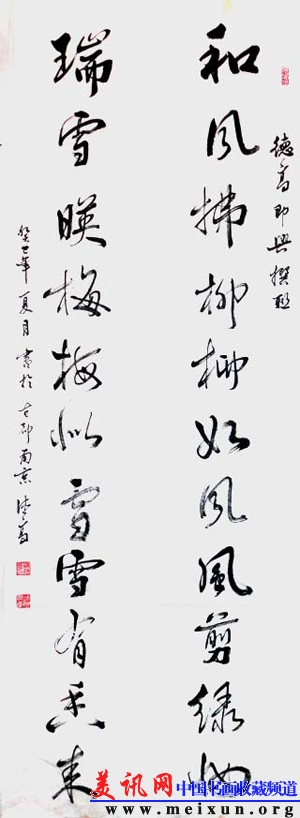 德高即興撰聯
和风拂柳柳如风風剪绿
瑞雪暎梅梅似雪雪有香来
癸巳年夏月書於古都南京德高
美讯网 中国书画收藏频道
www.meixun.org